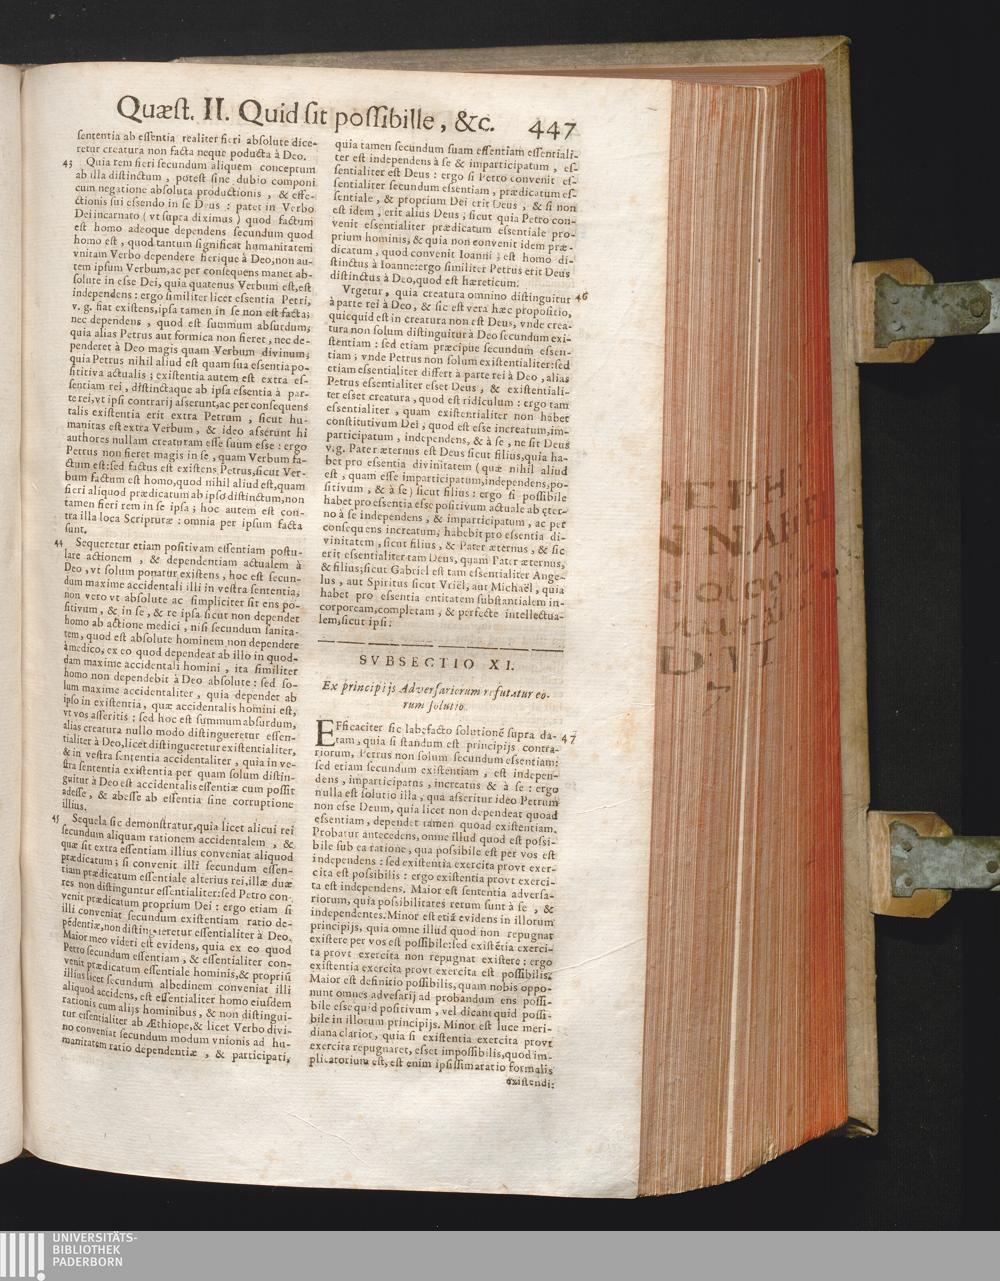 Quæst. II. Quid sit possibille, &c. 447
sententia ab essentia realiter fieri absolute dice-
retur creatura non facta neque poducta à Deo.
43 Quia rem fieri secundum aliquem conceptum
ab illa distinctum, potest sine dubio componi
cum negatione absoluta productionis, & effe-
ctionis sui essendo in se Deus: patet in Verbo
Dei incarnato (vt supra diximus) quod factum
est homo adeoque dependens secundum quod
homo est, quod tantum significat humanitatem
vnitam Verbo dependere fierique à Deo, non au-
tem ipsum Verbum, ac per consequens manet ab-
solute in esse Dei, quia quatenus Verbum est, est
independens: ergo similiter licet essentia Petri,
v. g. fiat existens, ipsa tamen in se non est facta;
nec dependens, quod est summum absurdum;
quia alias Petrus aut formica non fieret, nec de-
penderet à Deo magis quam Verbum divinum;
quia Petrus nihil aliud est quam sua essentia po-
sititiva actualis; existentia autem est extra es-
sentiam rei, distinctaque ab ipsa essentia à par-
te rei, vt ipsi contrarij asserunt, ac per consequens
talis existentia erit extra Petrum, sicut hu-
manitas est extra Verbum, & ideo asserunt hi
authores nullam creaturam esse suum esse: ergo
Petrus non fieret magis in se, quam Verbum fa-
ctum est: sed factus est existens Petrus, sicut Ver-
bum factum est homo, quod nihil aliud est, quam
fieri aliquod prædicatum ab ipso distinctum, non
tamen fieri rem in se ipsa; hoc autem est con-
tra illa loca Scripturæ: omnia per ipsum facta
sunt.
44 Sequeretur etiam positivam essentiam postu-
lare actionem, & dependentiam actualem à
Deo, vt solum ponatur existens, hoc est secun-
dum maxime accidentali illi in vestra sententia;
non vero vt absolute ac simpliciter sit ens po-
sitivum, & in se, & re ipsa sicut non dependet
homo ab actione medici, nisi secundum sanita-
tem, quod est absolute hominem non dependere
à medico, ex eo quod dependeat ab illo in quod-
dam maxime accidentali homini, ita similiter
homo non dependebit à Deo absolute: sed so-
lum maxime accidentaliter, quia dependet ab
ipso in existentia, quæ accidentalis homini est,
vt vos asseritis: sed hoc est summum absurdum,
alias creatura nullo modo distingueretur essen-
tialiter à Deo, licet distingueretur existentialiter,
& in vestra sententia accidentaliter, quia in ve-
stra sententia existentia per quam solum distin-
guitur à Deo est accidentalis essentiæ cum possit
adesse, & abesse ab essentia sine corruptione
illius.
45 Sequela sic demonstratur, quia licet alicui rei
secundum aliquam rationem accidentalem, &
quæ sit extra essentiam illius conveniat aliquod
prædicatum; si convenit illi secundum essen-
tiam prædicatum essentiale alterius rei, illæ duæ
res non distinguntur essentialiter: sed Petro con-
venit prædicatum proprium Dei: ergo etiam si
illi conveniat secundum existentiam ratio de-
pēdentiæ, non distingueretur essentialiter à Deo.
Maior meo videri est evidens, quia ex eo quod
Petro secundum essentiam, & essentialiter con-
venit prædicatum essentiale hominis, & propriū
illius licet secundum albedinem conveniat illi
aliquod accidens, est essentialiter homo eiusdem
rationis cum alijs hominibus, & non distingui-
tur essentialiter ab Æthiope, & licet Verbo divi-
no conveniat secundum modum vnionis ad hu-
manitatem ratio dependentiæ, & participati,
quia tamen secundum suam essentiam essentiali-
ter est independens à se & imparticipatum, es-
sentialiter est Deus: ergo si Petro convenit es-
sentialiter secundum essentiam, prædicatum es-
sentiale, & proprium Dei erit Deus, & si non
est idem, erit alius Deus, sicut quia Petro con-
venit essentialiter prædicatum essentiale pro-
prium hominis, & quia non convenit idem præ-
dicatum, quod convenit Ioanni; est homo di-
stinctus à Ioanne: ergo similiter Petrus erit Deus
distinctus à Deo, quod est hæreticum.
Vrgetur, quia creatura omnino distinguitur 46
à parte rei à Deo, & sic est vera hæc propositio,
quicquid est in creatura non est Deus, vnde crea-
tura non solum distinguitur à Deo secundum exi-
stentiam: sed etiam præcipue secundum essen-
tiam; vnde Petrus non solum existentialiter: sed
etiam essentialiter differt à parte rei à Deo, alias
Petrus essentialiter esset Deus, & existentiali-
ter esset creatura, quod est ridiculum: ergo tam
essentialiter, quam existentialiter non habet
constitutivum Dei, quod est esse increatum, im-
participatum, independens, & à se, ne sit Deus
v. g. Pater æternus est Deus sicut filius, quia ha-
bet pro essentia divinitatem (quæ nihil aliud
est, quam esse imparticipatum, independens, po-
sitivum, & à se) sicut filius: ergo si possibile
habet pro essentia esse positivum actuale ab eter-
no à se independens, & imparticipatum, ac per
consequens increatum, habebit pro essentia di-
vinitatem, sicut filius, & Pater æternus, & sic
erit essentialiter tam Deus, quam Pater æternus,
& filius; sicut Gabriel est tam essentialiter Ange-
lus, aut Spiritus sicut Vriël, aut Michaël, quia
habet pro essentia entitatem substantialem in-
corpoream, completam, & perfecte intellectua-
lem, sicut ipsi.
SVBSECTIO XI.
Ex principijs Adversariorum refutatur eo-
rum solutio.
EFficaciter sic labefacto solutionē supra da- 47
tam, quia si standum est principijs contra-
riorum, Petrus non solum secundum essentiam:
sed etiam secundum existentiam, est indepen-
dens, imparticipatus, increatus & à se: ergo
nulla est solutio illa, qua asseritur ideo Petrum
non esse Deum, quia licet non dependeat quoad
essentiam, dependet tamen quoad existentiam.
Probatur antecedens, omne illud quod est possi-
bile sub ea ratione, qua possibile est per vos est
independens: sed existentia exercita provt exer-
cita est possibilis: ergo existentia provt exerci-
ta est independens. Maior est sententia adversa-
riorum, quia possibilitates rerum sunt à se, &
independentes. Minor est etiā evidens in illorum
principijs, quia omne illud quod non repugnat
existere per vos est possibile: sed existētia exerci-
ta provt exercita non repugnat existere: ergo
existentia exercita provt exercita est possibilis.
Maior est definitio possibilis, quam nobis oppo-
nunt omnes adversarij ad probandum ens possi-
bile esse quid positivum, vel dicant quid possi-
bile in illorum principijs. Minor est luce meri-
diana clarior, quia si existentia exercita provt
exercita repugnaret, esset impossibilis, quod im-
plicatorium est, est enim ipsissima ratio formalis
existendi:
UNIVERSITÄTS-
BIBLIOTHEK
PADERBORN